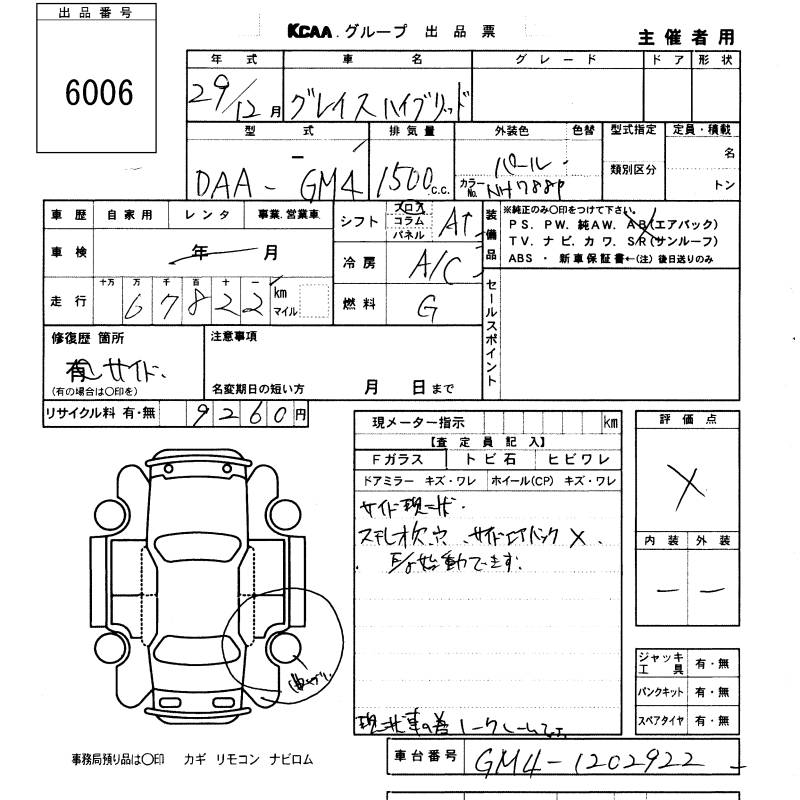 出品番号
6006
KCAA.グループ 出品票
主催者用
年式 車名 グレード ドア 形状
29/12月 グレイスハイブリッド
型式 排気量 外装色 色替 型式指定 定員・積載
DAA-GM4 1500c.c. パール 類別区分 名
カラーNo. NH788P トン
車歴 自家用 レンタ 事業.営業車
シフト フロア コラム パネル AT
装備品
※純正のみ〇印をつけて下さい。
PS. PW. 純AW. AB(エアバック)
TV. ナビ. カワ. S/R(サンルーフ)
ABS ・ 新車保証書←(注)後日送りのみ
車検 年 月
冷房 A/C
走行 十万 万 千 百 十 一
67822 km マイル
燃料 G
セールスポイント
修復歴 箇所
有 サイド.
(有の場合は〇印を)
注意事項
名変期日の短い方 月 日まで
リサイクル料 有・無 9260円
現メーター指示 km
【査定員記入】
Fガラス トビ石 ヒビワレ
ドアミラー キズ・ワレ ホイール(CP) キズ・ワレ
サイド現状.
ステレオ欠.穴.サイドエアバック×.
E/g始動できます.
現状車の為ノークレームで
評価点
×
内装 外装
ー ー
ジャッキ工具 有・無
パンクキット 有・無
スペアタイヤ 有・無
曲がり
事務局預り品は〇印 カギ リモコン ナビロム
車台番号 GM4-1202922